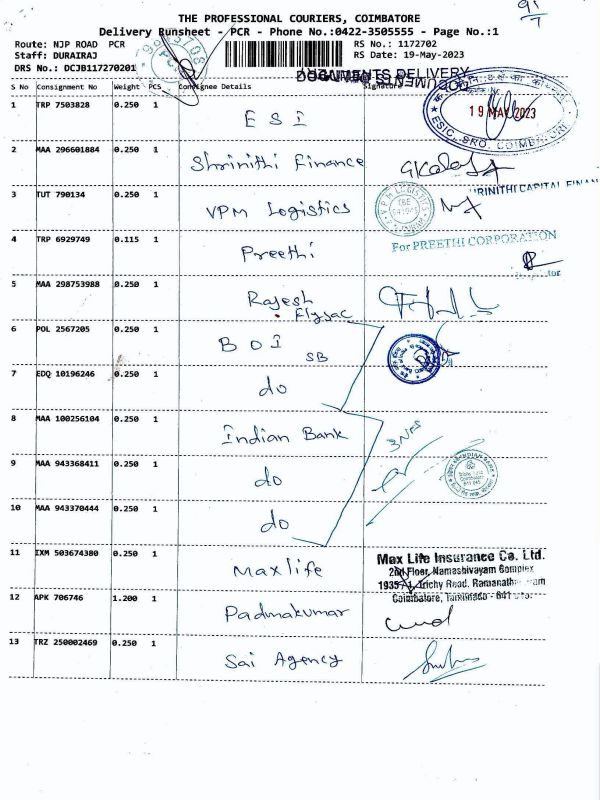 THE PROFESSIONAL COURIERS, COIMBATORE
Delivery Runsheet - PCR - Phone No.:0422-3505555 - Page No.:1
Route: NJP ROAD PCR
RS No.: 1172702
Staff: DURAIRAJ
RS Date: 19-May-2023
DRS No.: DCJB117270201
DOCUMENTS DELIVERY
S No Consignment No Weight PCS Consignee Details Signature
1 TRP 7503828 0.250 1 ESI
19 MAY 2023
ESIC, SRO, COIMBATORE
2 MAA 296601884 0.250 1 Shrinithi Finance
SHRINITHI CAPITAL FINAN
3 TUT 790134 0.250 1 VPM Logistics
VPM LOGISTICS
4 TRP 6929749 0.115 1 Preethi
For PREETHI CORPORATION
5 MAA 298753988 0.250 1 Rajesh
Flysac
6 POL 2567205 0.250 1 BOI
SB
7 EDQ 10196246 0.250 1 do
8 MAA 100256104 0.250 1 Indian Bank
9 MAA 943368411 0.250 1 do
INDIAN BANK
10 MAA 943370444 0.250 1 do
11 IXM 503674380 0.250 1 Maxlife
Max Life Insurance Co. Ltd.
2nd Floor, Namashivayam Complex
1935/1, Trichy Road, Ramanathapuram
Coimbatore, Tamilnadu - 641
12 APK 706746 1.200 1 Padmakumar
13 TRZ 250002469 0.250 1 Sai Agency